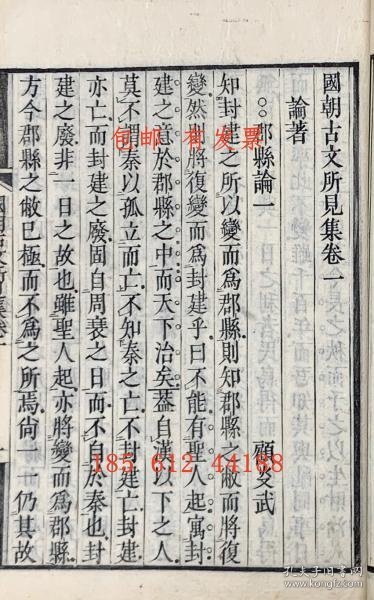 國朝古文所見集卷一
論著
○○郡縣論一 顧炎武
知封建之所以變而爲郡縣則知郡縣之敝而將復
變然則將復變而爲封建乎曰不能有聖人起寓封
建之意於郡縣之中而天下治矣葢自漢以下之人
莫不謂秦以孤立而亡不知秦之亡不封建亡封建
亦亡而封建之廢固自周衰之日而不自於秦也封
建之廢非一日之故也雖聖人起亦將變而爲郡縣
方今郡縣之敝已極而不爲之所焉尙一一仍其故
包邮 有发票
185 612 44168
孔夫子旧书网